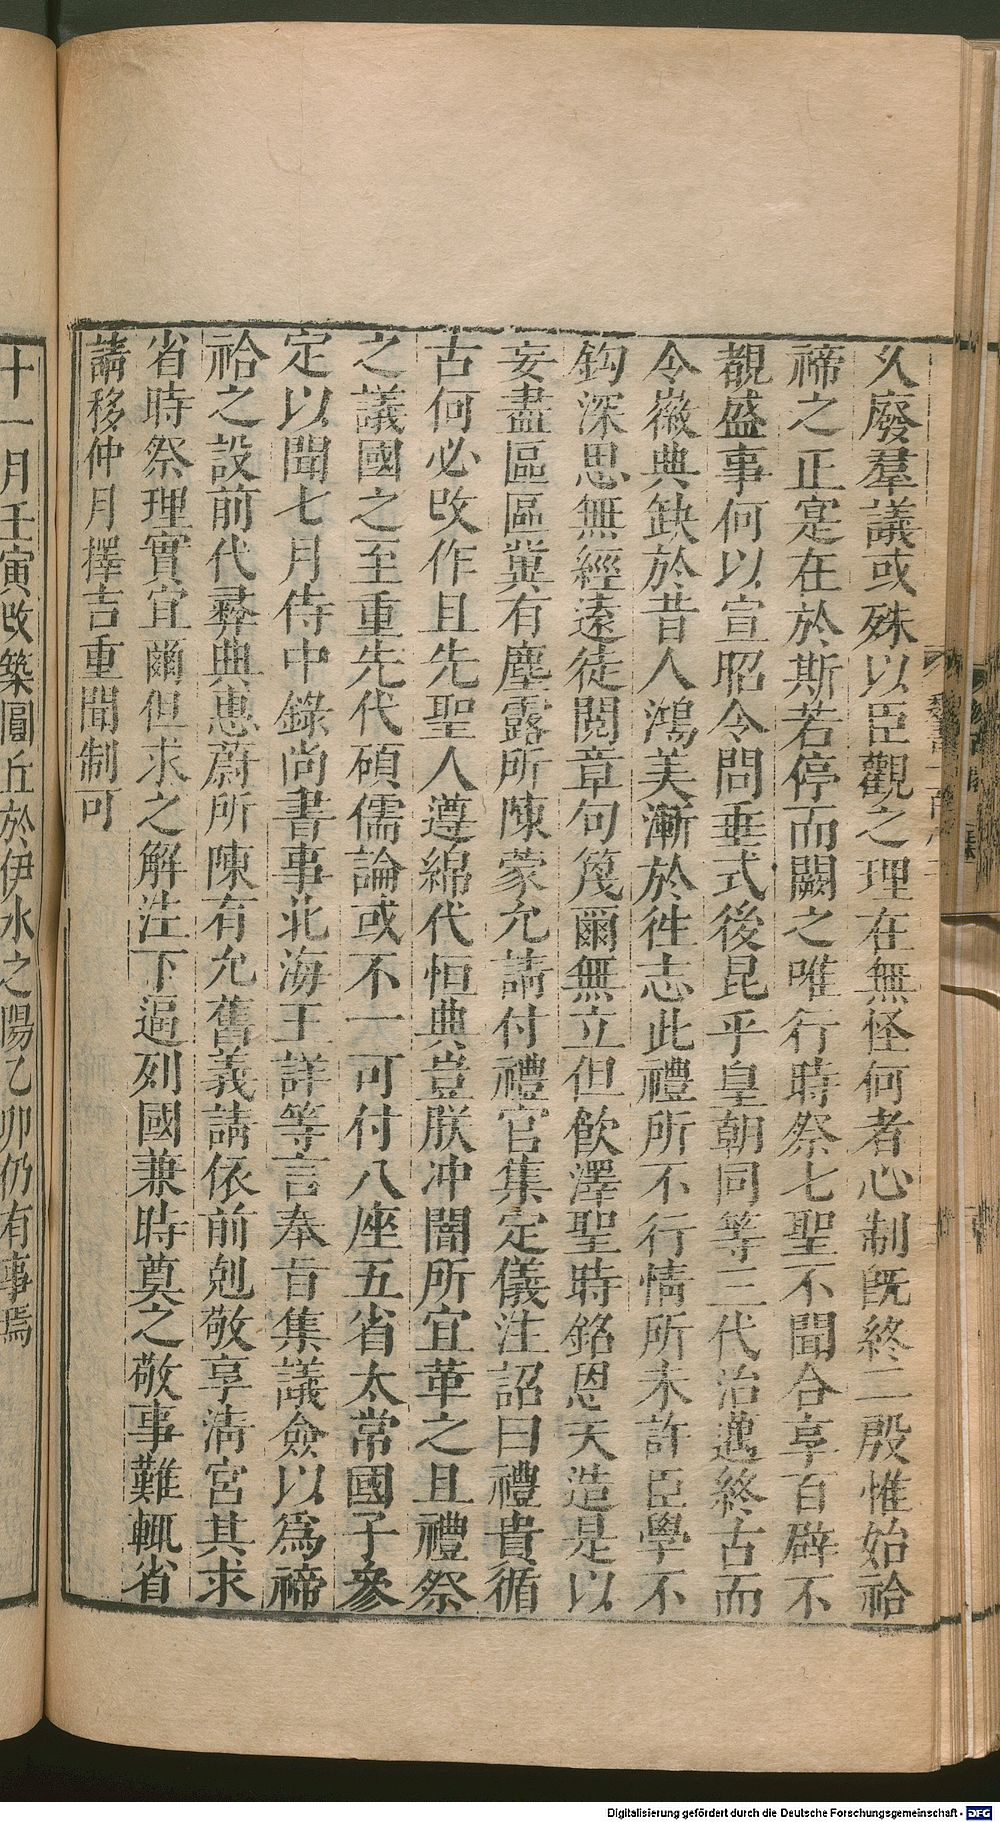 久廢羣議或殊以臣觀之理在無怪何者心制旣終二殷惟始祫
禘之正寔在於斯若停而闕之唯行時祭七聖不聞合享百辟不
覩盛事何以宣昭令問垂式後昆乎皇朝同等三代治邁終古而
令徽典缺於昔人鴻美漸於徃志此禮所不行情所未許臣學不
鈎深思無經遠徒閱章句蔑爾無立但飮澤聖時銘恩天造是以
妄盡區區冀有塵露所陳蒙允請付禮官集定儀注詔曰禮貴循
古何必改作且先聖人遵綿代恒典豈朕冲闇所宜革之且禮祭
之議國之至重先代碩儒論或不一可付八座五省太常國子參
定以聞七月侍中錄尚書事北海王詳等言奉旨集議僉以爲禘
祫之設前代彝典惠蔚所陳有允舊義請依前剋敬享淸宮其求
省時祭理實宜爾但求之解注下逼列國兼時奠之敬事難輒省
請移仲月擇吉重聞制可
十一月壬寅改築圓丘於伊水之陽乙卯仍有事焉
Digitalisierung gefördert durch die Deutsche Forschungsgemeinschaft - DFG